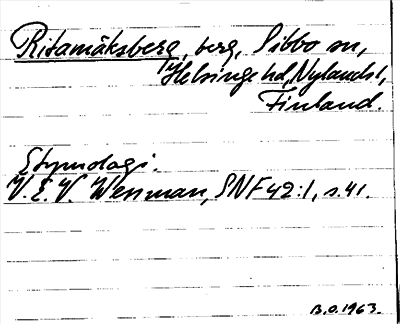 Ritamäksberg, berg, Sibbo sn,
Helsinge hd, Nylands l,
Finland.
Etymologi.
V. E. V. Wessman, SNF 42:1, s. 41.
B.O. 1963.